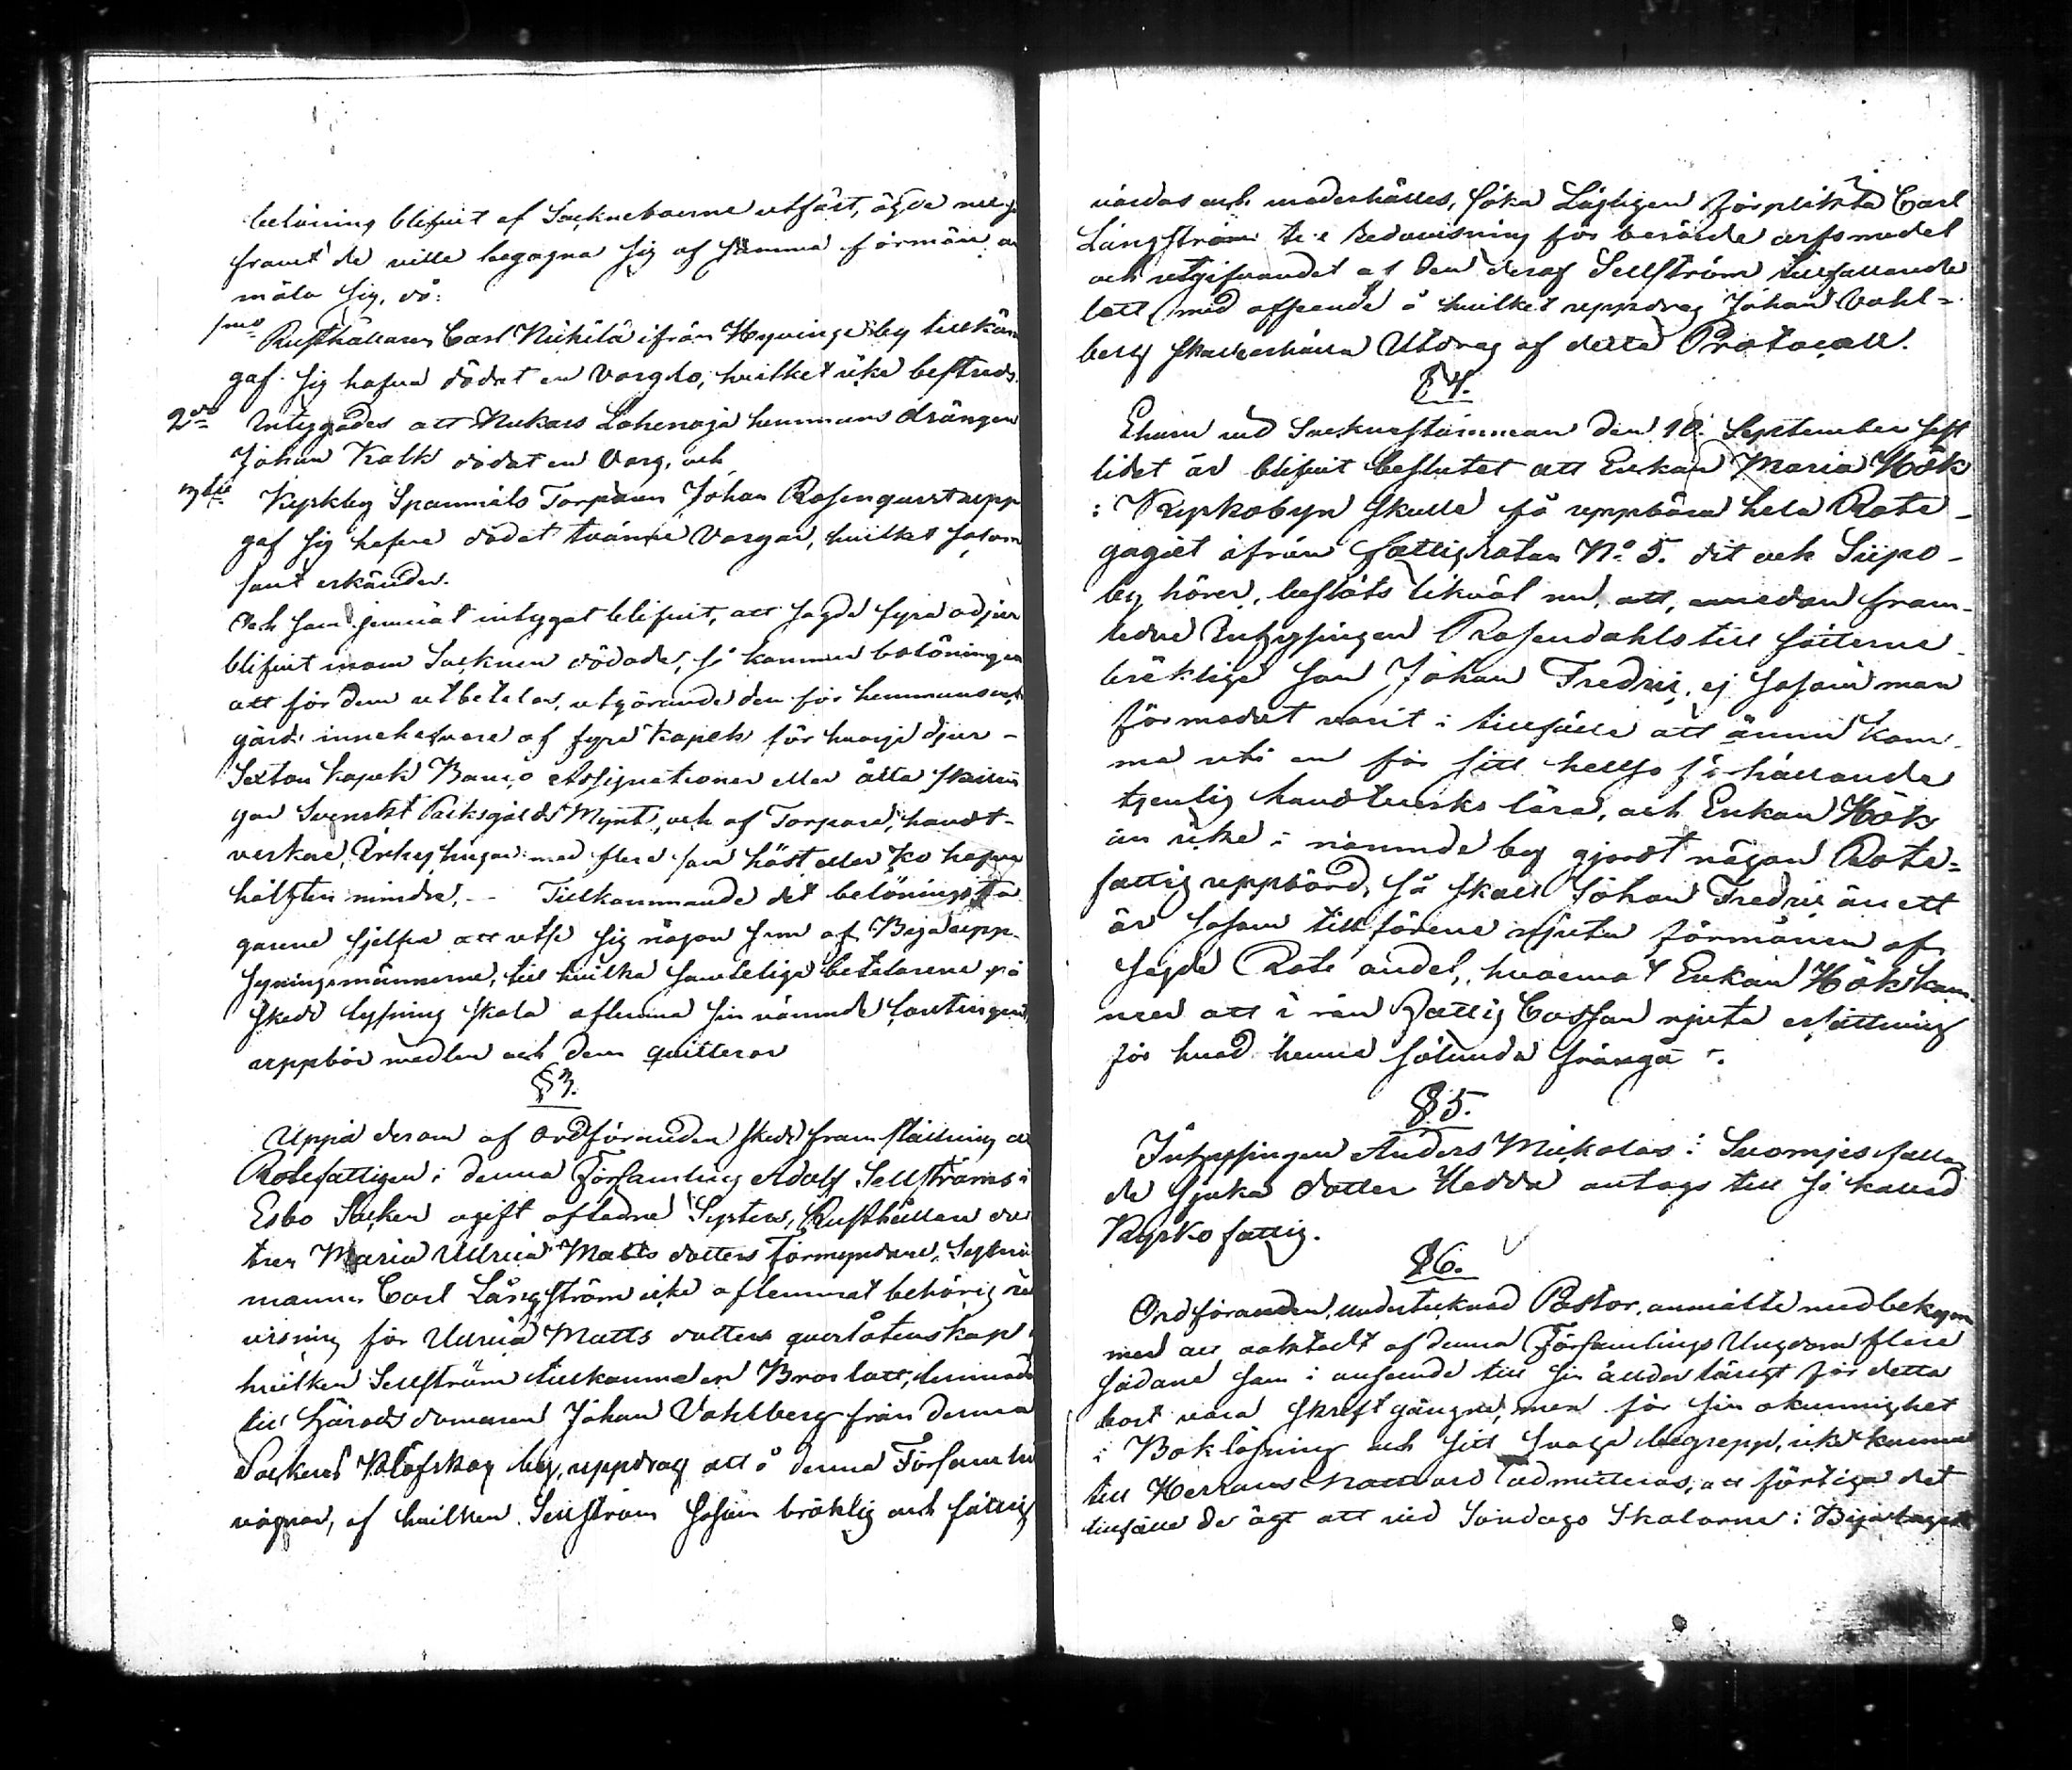 belöning blifvit af Sockneboerne utfäst, ägde nu
framt de ville begagna sig af samma förmån, an
mäla sig, då:
1mo Rusthållaren Carl Nikilä ifrån Hyvinge by tillkänna
gaf sig hafva dödat en Varglo, hvilket icke bestreds.
2do Intygades att Nukars Lahenoja hemmans drängen
Johan Kalk dödat en Varg, och
3tio Kyrkby Spannmåls Torparen Johan Rosenqvist upp
gaf sig hafva dödat tvänne Vargar, hvilket såsom
sant erkändes.
Och som jemväl intygat blifvit, att sagde fyra odjur
blifvit inom Socknen dödade, så kommer belöningen
att för dem utbetalas, utgörande den för hemmans och
gårds innehafvare af fyra kopek för hvarje djur –
Sexton kopek Banco Assignationer eller åtta skillin
gar Svenskt Riksgälds Mynt, och af Torpare, handt-
verkare, Inhysingar med flere som häst eller ko hafva
hälften mindre. -- Tillkommande det belönings ta
garene sjelfva att utse sig någon som af Byja upp-
syningsmännerne, till hvilka samtelige betalarene på
skedd lysning skola aflemna sin nämnde Contingent,
uppbär medlen och dem quitterar
§ 3.
Uppå derom af Ordföranden skedd framställning a
Rotefattigen i denna Församling Adolf Sellströms i
Esbo Socken ogift afledna Syster, Rusthållare dot
tren Maria Ulrica Matts dotters Förmyndare, Sextni
mannen Carl Långström icke aflemnat behörig re
visning för Ulrica Matts dotters qvarlåtenskap
hvilken Sellström tillkommer en Broslott, lemnade
till Härads domaren Johan Vahlberg från denna
Sockens Klöfskog by, uppdrag att å denna Församlin
vägnar, af hvilken Sellström såsom bräklig och fattig
vårdas och underhålles, söka Lagligen förplikta Carl
Långström till Redovisning för berörde arfs medel
och utgifvandet af den deraf Sellström tillfallande
lott med afseende å hvilket uppdrag Johan Vahl-
berg skall erhålla Utdrag af detta Protocoll.
§ 4.
Ehuru vid Sockenstämman den 10 September sist
lidet år blifvit beslutet att Enkan Maria Hök
i Kyrkobyn skulle få uppbära hela Rote-
gaget ifrån fattigRotan N:o 5. dit och Siipo-
by hörer, beslöts likväl nu, att, emedan fram-
ledne Inhysingen Rosendahls till fötterne
bräklige son Johan Fredric, ej såsom man
förmodat varit i tillfälle att ännu kom-
ma uti en för sitt hellso förhållande
tjenlig handtverks lära, och Enkan Hök
än icke i nämnde by gjordt någon Rote-
fattig uppbörd, så skall Johan Fredric än ett
år såsom tillförene njuta förmånen af
sagde Rote andel, hvaremot Enkan Hök kom-
mer att i rän Fattig Cassan njuta ersättning
för hvad henne sålunda frångå.
§ 5.
Inhysingen Anders Mickolas i Suomjes fallan
de sjuka dotter Hedda antogs till så kallad
Kyrko fattig.
§ 6.
Ordföranden, undertecknad Pastor, anmälte med bekym
mer att oaktadt af denna Församlings Ungdom flere
sådane som i anseende till sin ålder längst för detta
bort vara skriftgångne, men för sin okunnighet
i Bokläsning och sitt svaga begrepp, icke kunna
till Herrans Nattvard admitteras, att förtiga det
tillfälle de ägt att vid Söndags Skolorne i Byalagen